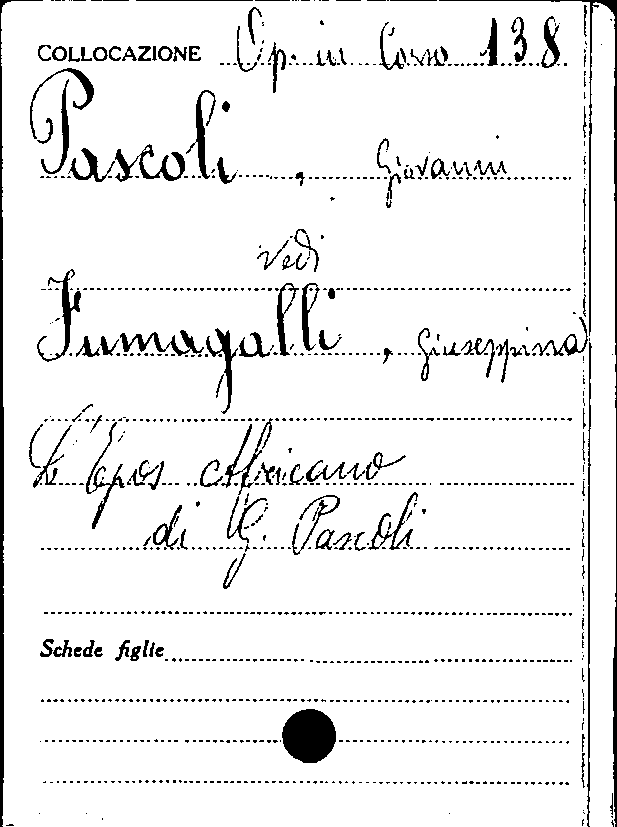 COLLOCAZIONE Op. in Corso 138
Pascoli, Giovanni
Vedi
Fumagalli, Giuseppina
L'Epos Africano
di G. Pascoli
Schede figlie